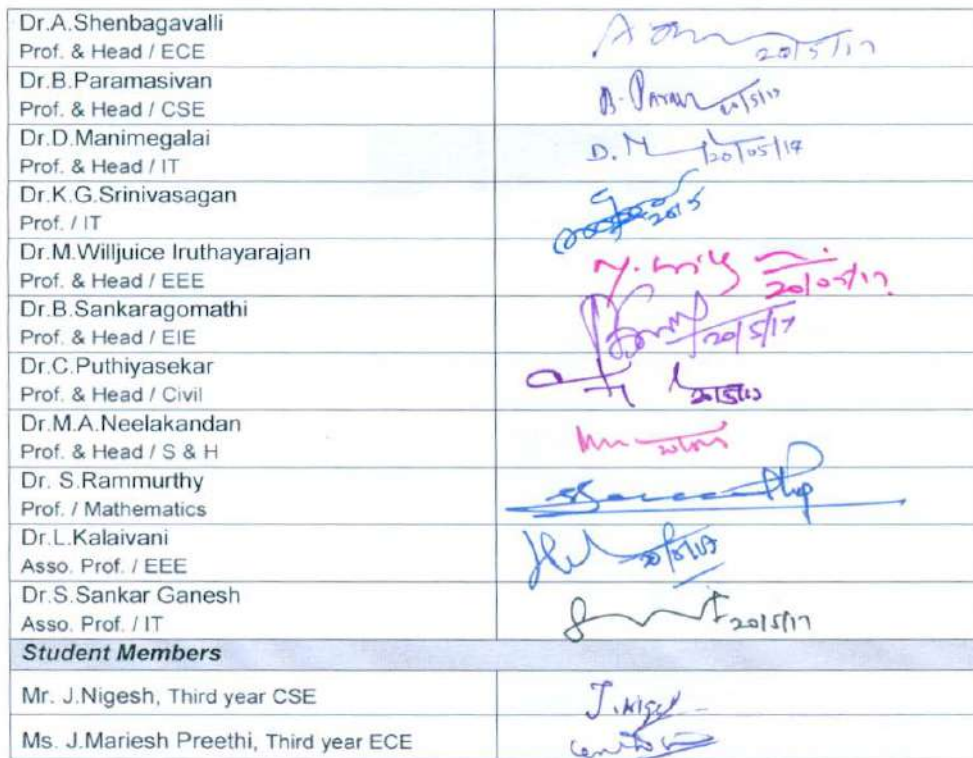 Dr.A.Shenbagavalli
Prof. & Head / ECE
20/5/17
Dr.B.Paramasivan
Prof. & Head / CSE
B. Param 20/5/17
Dr.D.Manimegalai
Prof. & Head / IT
D. M 20/05/17
Dr.K.G.Srinivasagan
Prof. / IT
20/5
Dr.M.Willjuice Iruthayarajan
Prof. & Head / EEE
20/05/17
Dr.B.Sankaragomathi
Prof. & Head / EIE
20/5/17
Dr.C.Puthiyasekar
Prof. & Head / Civil
20/5/17
Dr.M.A.Neelakandan
Prof. & Head / S & H
Dr. S.Rammurthy
Prof. / Mathematics
Dr.L.Kalaivani
Asso. Prof. / EEE
20/5/17
Dr.S.Sankar Ganesh
Asso. Prof. / IT
20/5/17
Student Members
Mr. J.Nigesh, Third year CSE
J. Nigesh
Ms. J.Mariesh Preethi, Third year ECE